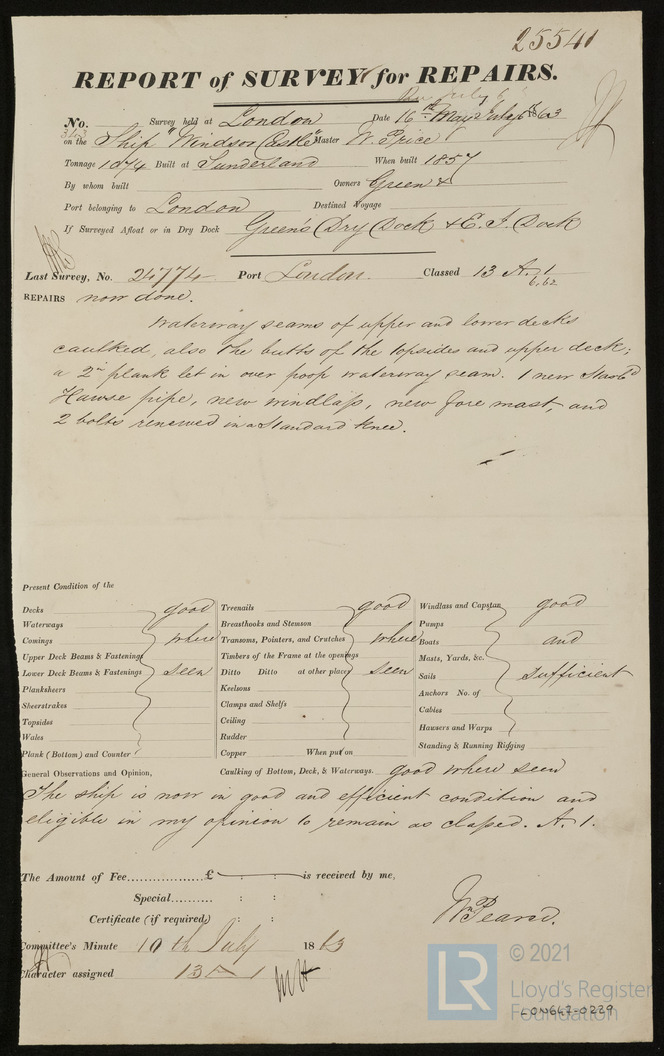 25541
REPORT of SURVEY for REPAIRS.
No. Survey held at London Date 16th May July 6th 1863
on the Ship "Windsor Castle" Master W. Price
Tonnage 1074 Built at Sunderland When built 1857
By whom built Owners Green &
Port belonging to London Destined Voyage
If Surveyed Afloat or in Dry Dock Green's Dry Dock & E. I. Dock
Last Survey, No. 24774 Port London Classed 13 A. 1
6,62
REPAIRS now done.
Waterway seams of upper and lower decks
caulked, also the butts of the topsides and upper deck;
a 2in plank let in over poop waterway seam. 1 new Starbd
Hawse pipe, new windlass, new fore mast, and
2 bolts renewed in a Standard Knee.
Present Condition of the
Decks good Treenails good Windlass and Capstan good
Waterways Breasthooks and Stemson Pumps
Comings where Transoms, Pointers, and Crutches where Boats and
Upper Deck Beams & Fastenings Timbers of the Frame at the openings Masts, Yards, &c.
Lower Deck Beams & Fastenings seen Ditto Ditto at other places seen Sails sufficient
Planksheers Keelsons Anchors No. of
Sheerstrakes Clamps and Shelfs Cables
Topsides Ceiling Hausers and Warps
Wales Rudder Standing & Running Rigging
Plank (Bottom) and Counter Copper When put on
General Observations and Opinion, Caulking of Bottom, Deck, & Waterways. good where seen
The ship is now in good and efficient condition and
eligible in my opinion to remain as classed. A. 1.
The Amount of Fee.................£ : : is received by me,
Special.......... : :
Certificate (if required) : :
Wm Pearce.
Committee's Minute 10th July 1863
Character assigned 13 A 1
© 2021
LR
Lloyd's Register
Foundation
LON647-0229